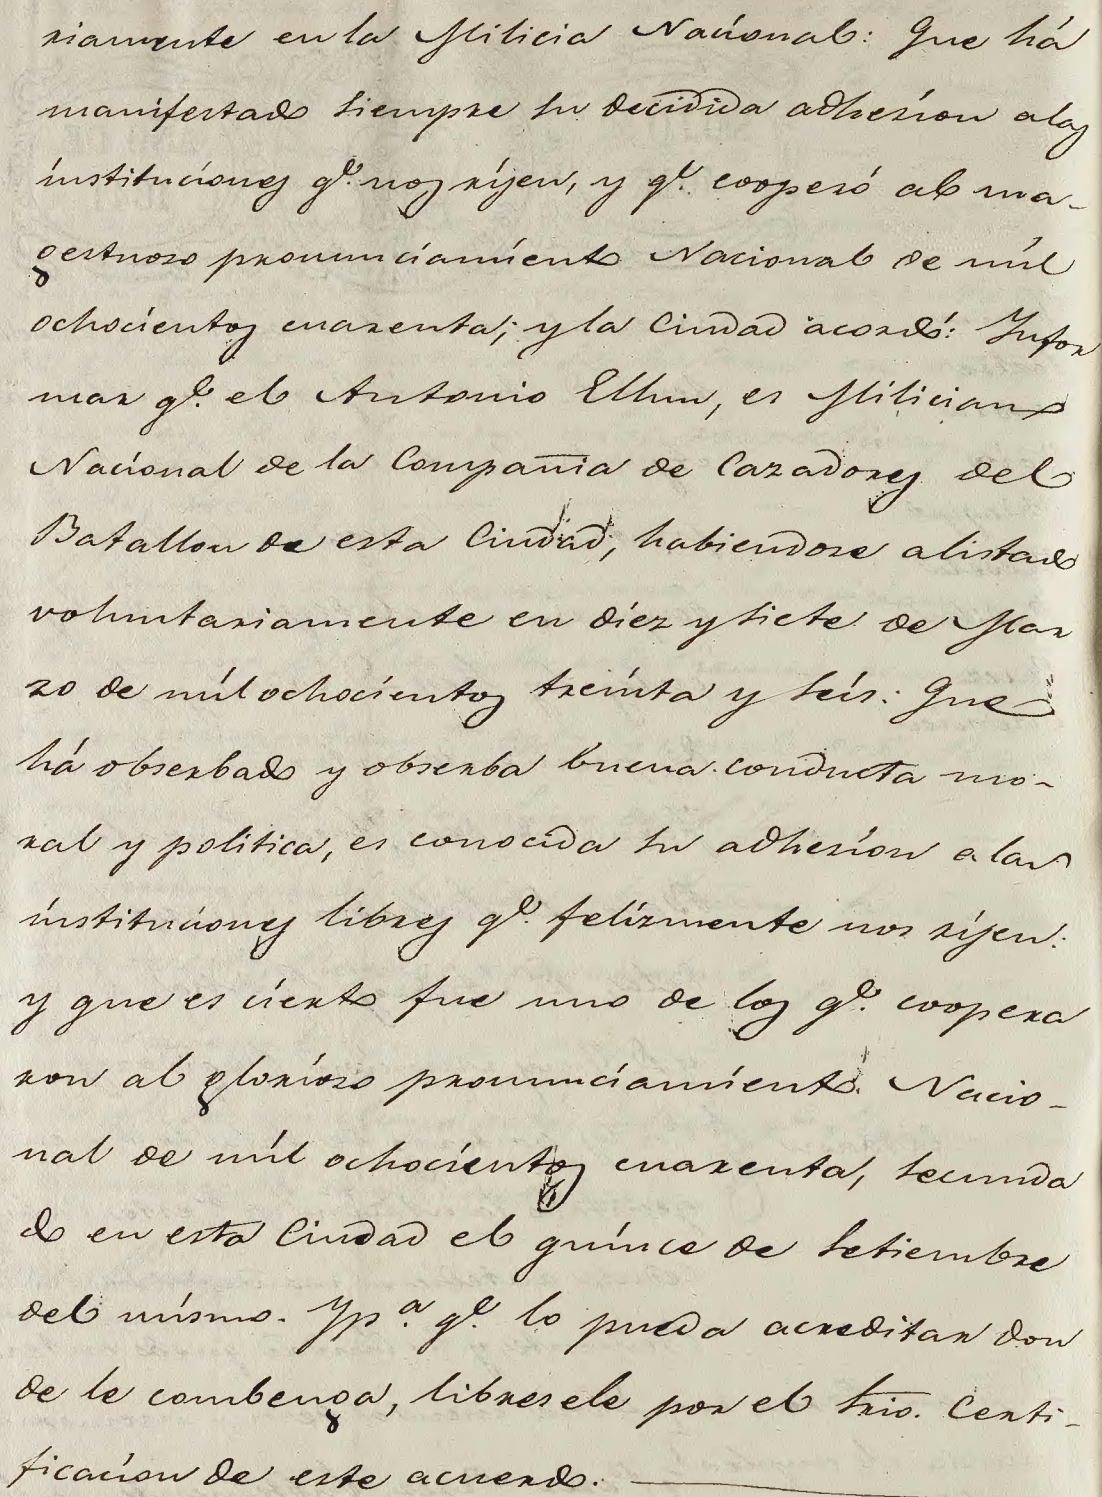 riamente en la Milicia Nacional: Que há
manifestado siempre su decidida adhesion alas
instituciones qe. nos rijen, y qe. cooperó al ma-
gestuoso pronunciamiento Nacional de mil
ochocientos cuarenta; y la Ciudad acordó: Infor
mar qe. el Antonio Ellun, es Miliciano
Nacional de la Compañia de Cazadores del
Batallon de esta Ciudad, habiendose alistado
voluntariamente en diez y siete de Mar
zo de mil ochocientos treinta y seis: Que
há obserbado y obserba buena conducta mo-
ral y politica, es conocida su adhesion a las
instituciones libres qe. felizmente nos rijen:
y que es cierto fue uno de los qe. coopera
ron al glorioso pronunciamiento Nacio-
nal de mil ochocientos cuarenta, secunda
do en esta Ciudad el quince de Setiembre
del mismo. Y pa. qe. lo pueda acreditar don
de le combenga, libresele por el Srio. Certi-
ficacion de este acuerdo.